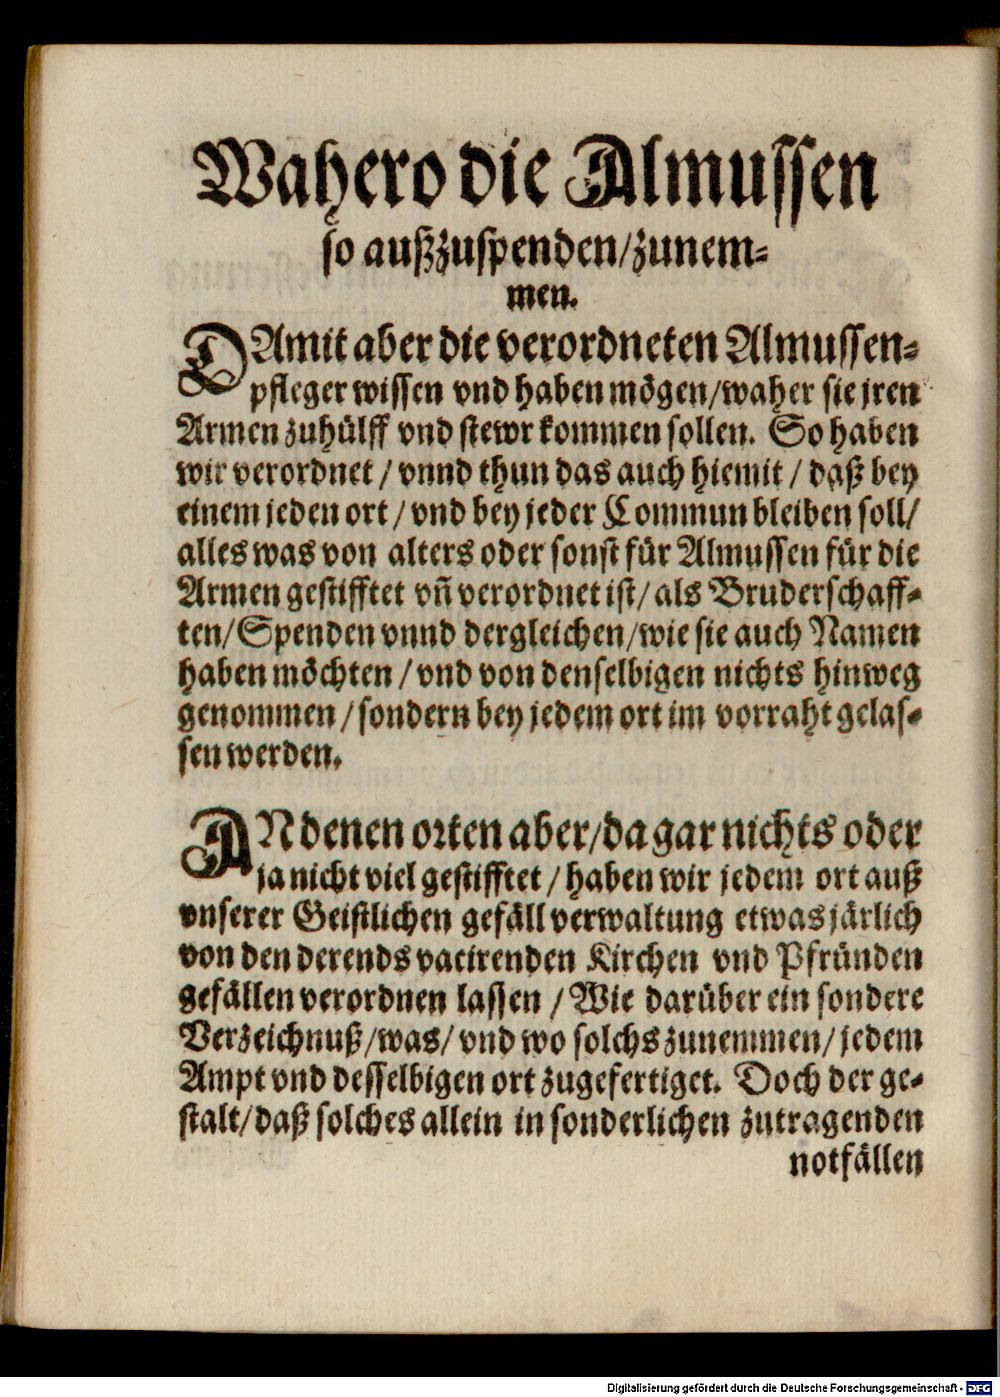 Wahero die Almussen
so außzuspenden/zunem⸗
men.
DAmit aber die verordneten Almussen⸗
pfleger wissen vnd haben mögen/waher sie jren
Armen zuhülff vnd stewr kommen sollen. So haben
wir verordnet / vnnd thun das auch hiemit / daß bey
einem jeden ort / vnd bey jeder Commun bleiben soll/
alles was von alters oder sonst für Almussen für die
Armen gestifftet vñ verordnet ist/ als Bruderschaff⸗
ten/Spenden vnnd dergleichen/wie sie auch Namen
haben möchten / vnd von denselbigen nichts hinweg
genommen / sondern bey jedem ort im vorraht gelas⸗
sen werden.
AN denen orten aber/da gar nichts oder
ja nicht viel gestifftet / haben wir jedem ort auß
vnserer Geistlichen gefäll verwaltung etwas järlich
von den derends vacirenden Kirchen vnd Pfründen
gefällen verordnen lassen / Wie darüber ein sondere
Verzeichnuß/was/ vnd wo solchs zunemmen/ jedem
Ampt vnd desselbigen ort zugefertiget. Doch der ge⸗
stalt/daß solches allein in sonderlichen zutragenden
notfällen
Digitalisierung gefördert durch die Deutsche Forschungsgemeinschaft - DFG